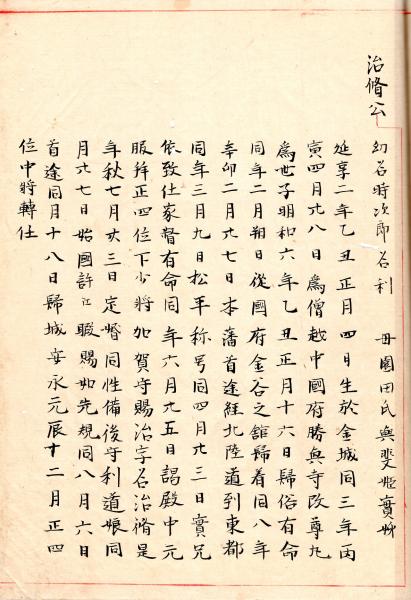 治脩公
幼名時次郎名利 母園田氏與斐姫實姊
延享二年乙丑正月四日生於金城同三年丙
寅四月廿八日爲僧越中國府勝興寺改尊丸
爲世子明和六年乙丑正月十六日歸俗有命
同年二月朔日從國府金谷之舘歸着同八年
辛卯二月廿七日本藩首途經北陸道到東都
同年三月九日松平称号同四月廿三日實兄
依致仕家督有命同年六月廿五日謁殿中元
服拜正四位下少將加賀守賜治字名治脩是
年秋七月廿三日定婚同性備後守利道娘同
月廿七日始國許江暇賜如先規同八月六日
首途同月十八日歸城安永元辰十二月正四
位中將轉仕